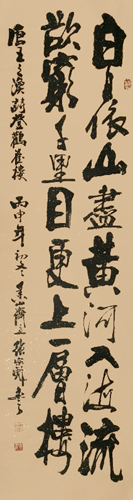 白日依山盡黃河入海流
欲窮千里目更上一層樓
唐王之渙詩登鸛雀樓 丙申年初冬